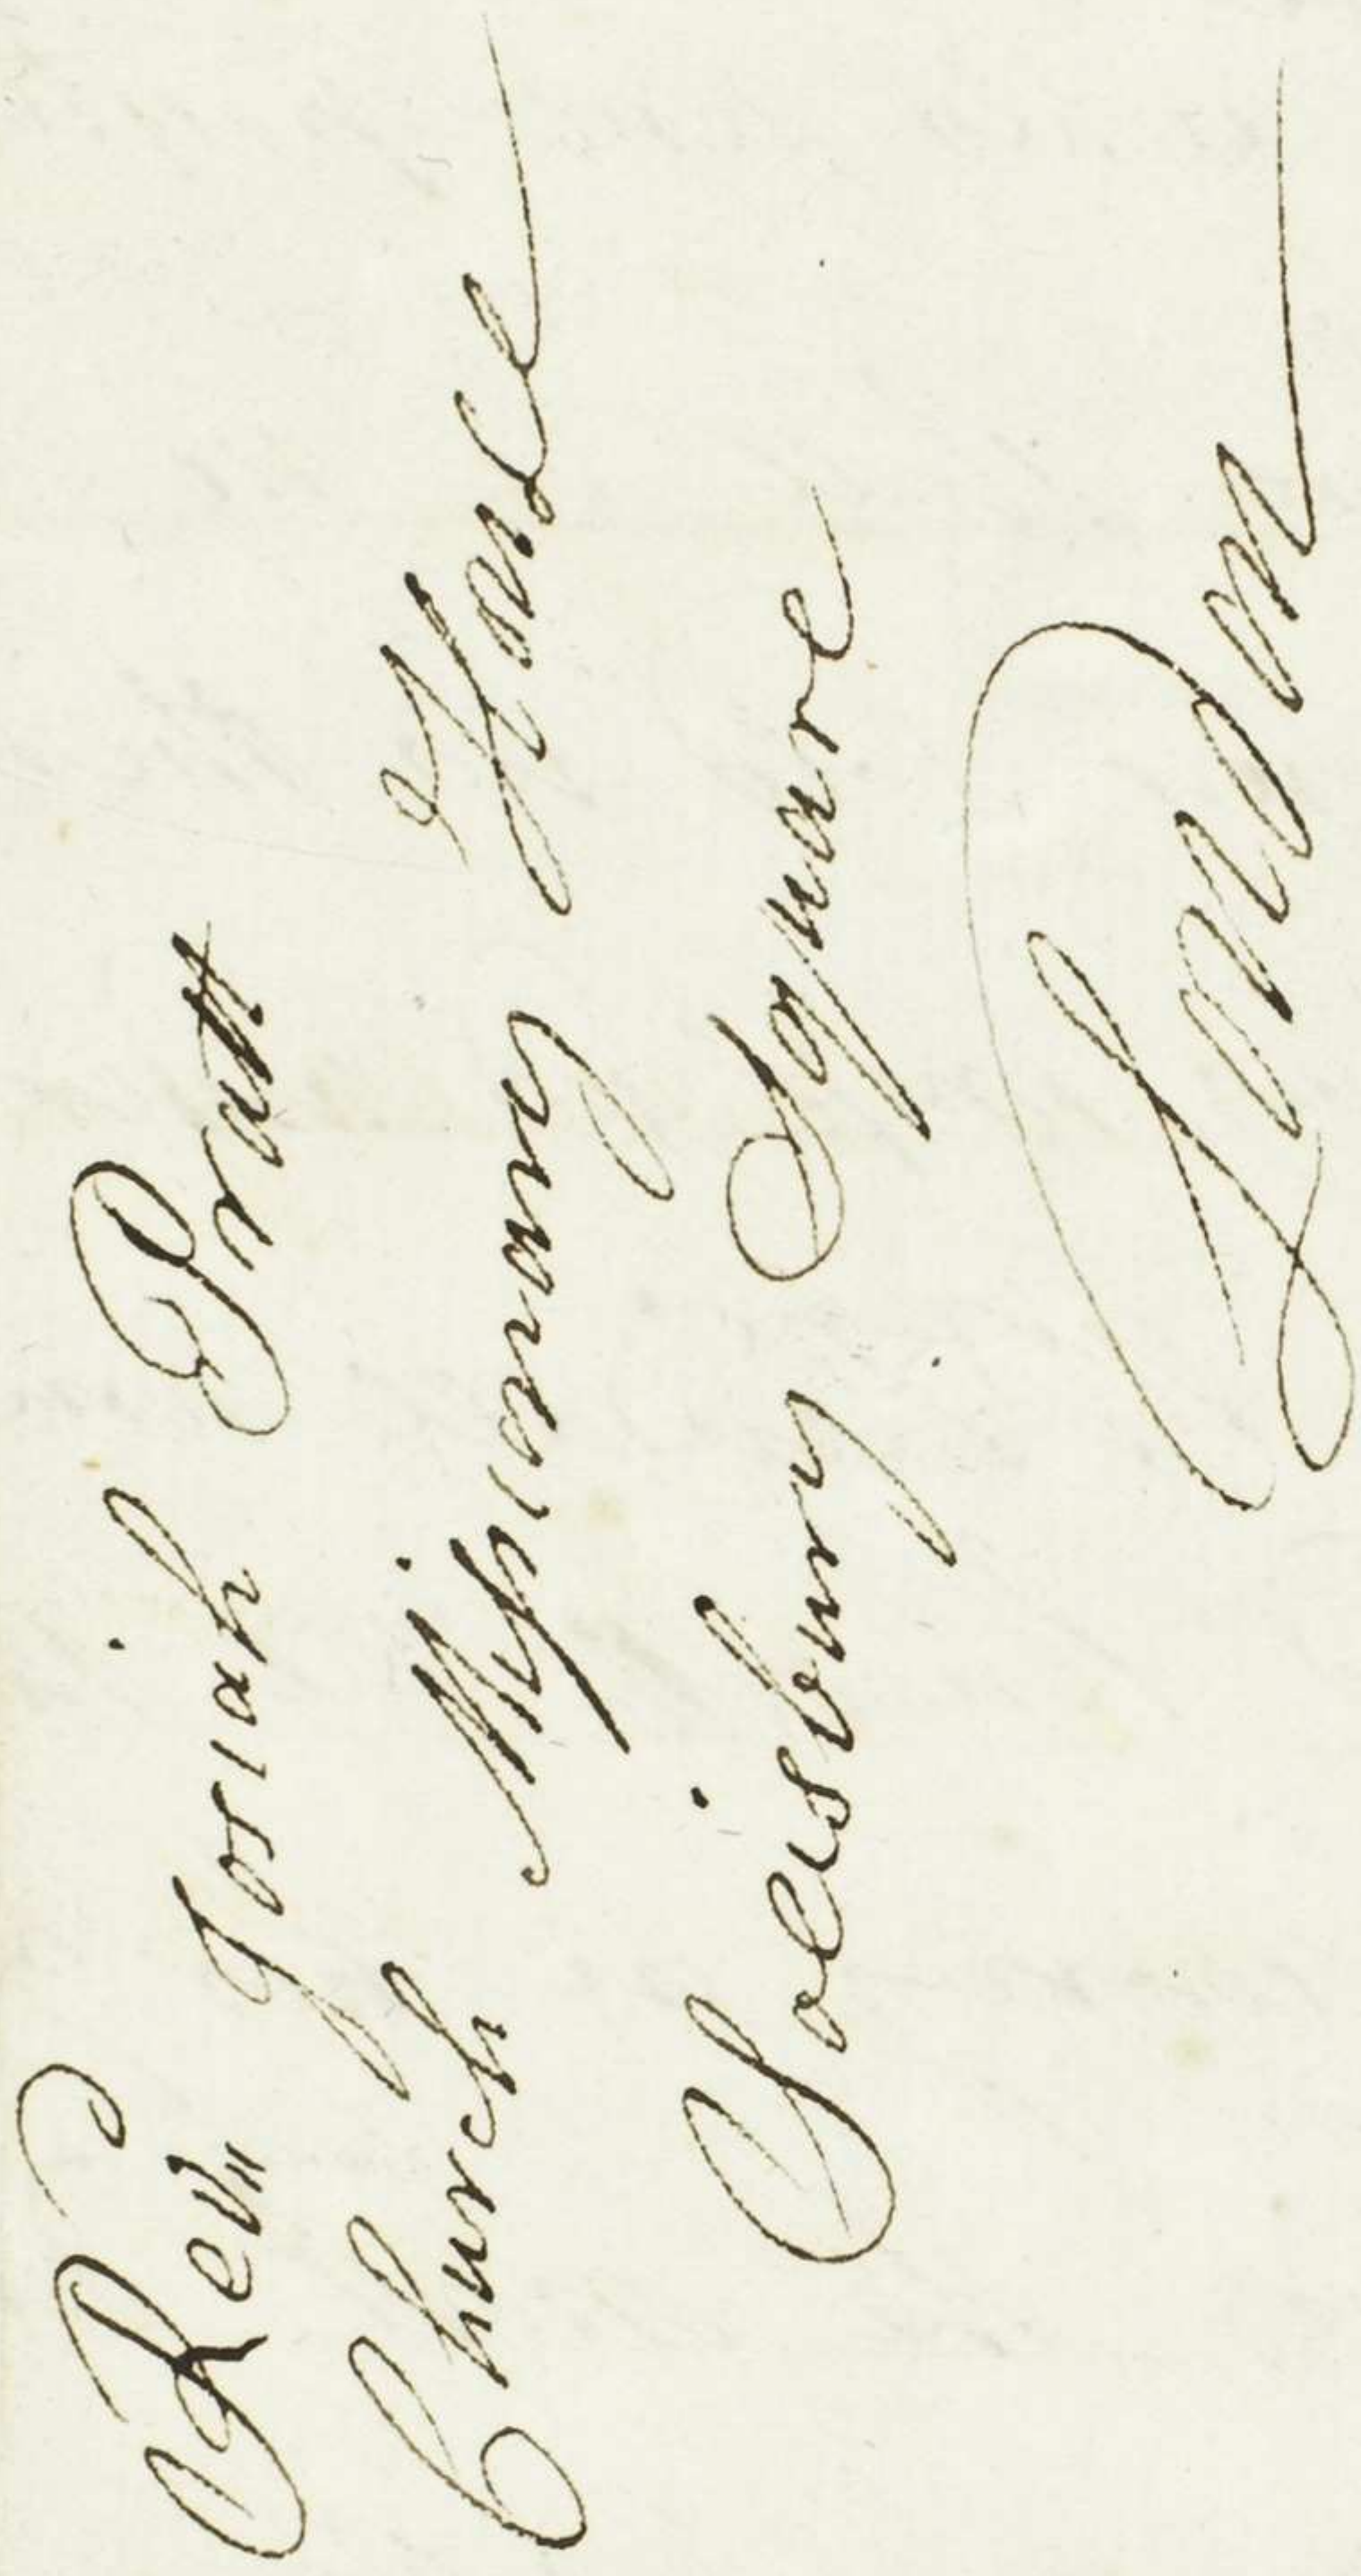 Revd Josiah Pratt
Church Missionary House
Salisbury Square
London